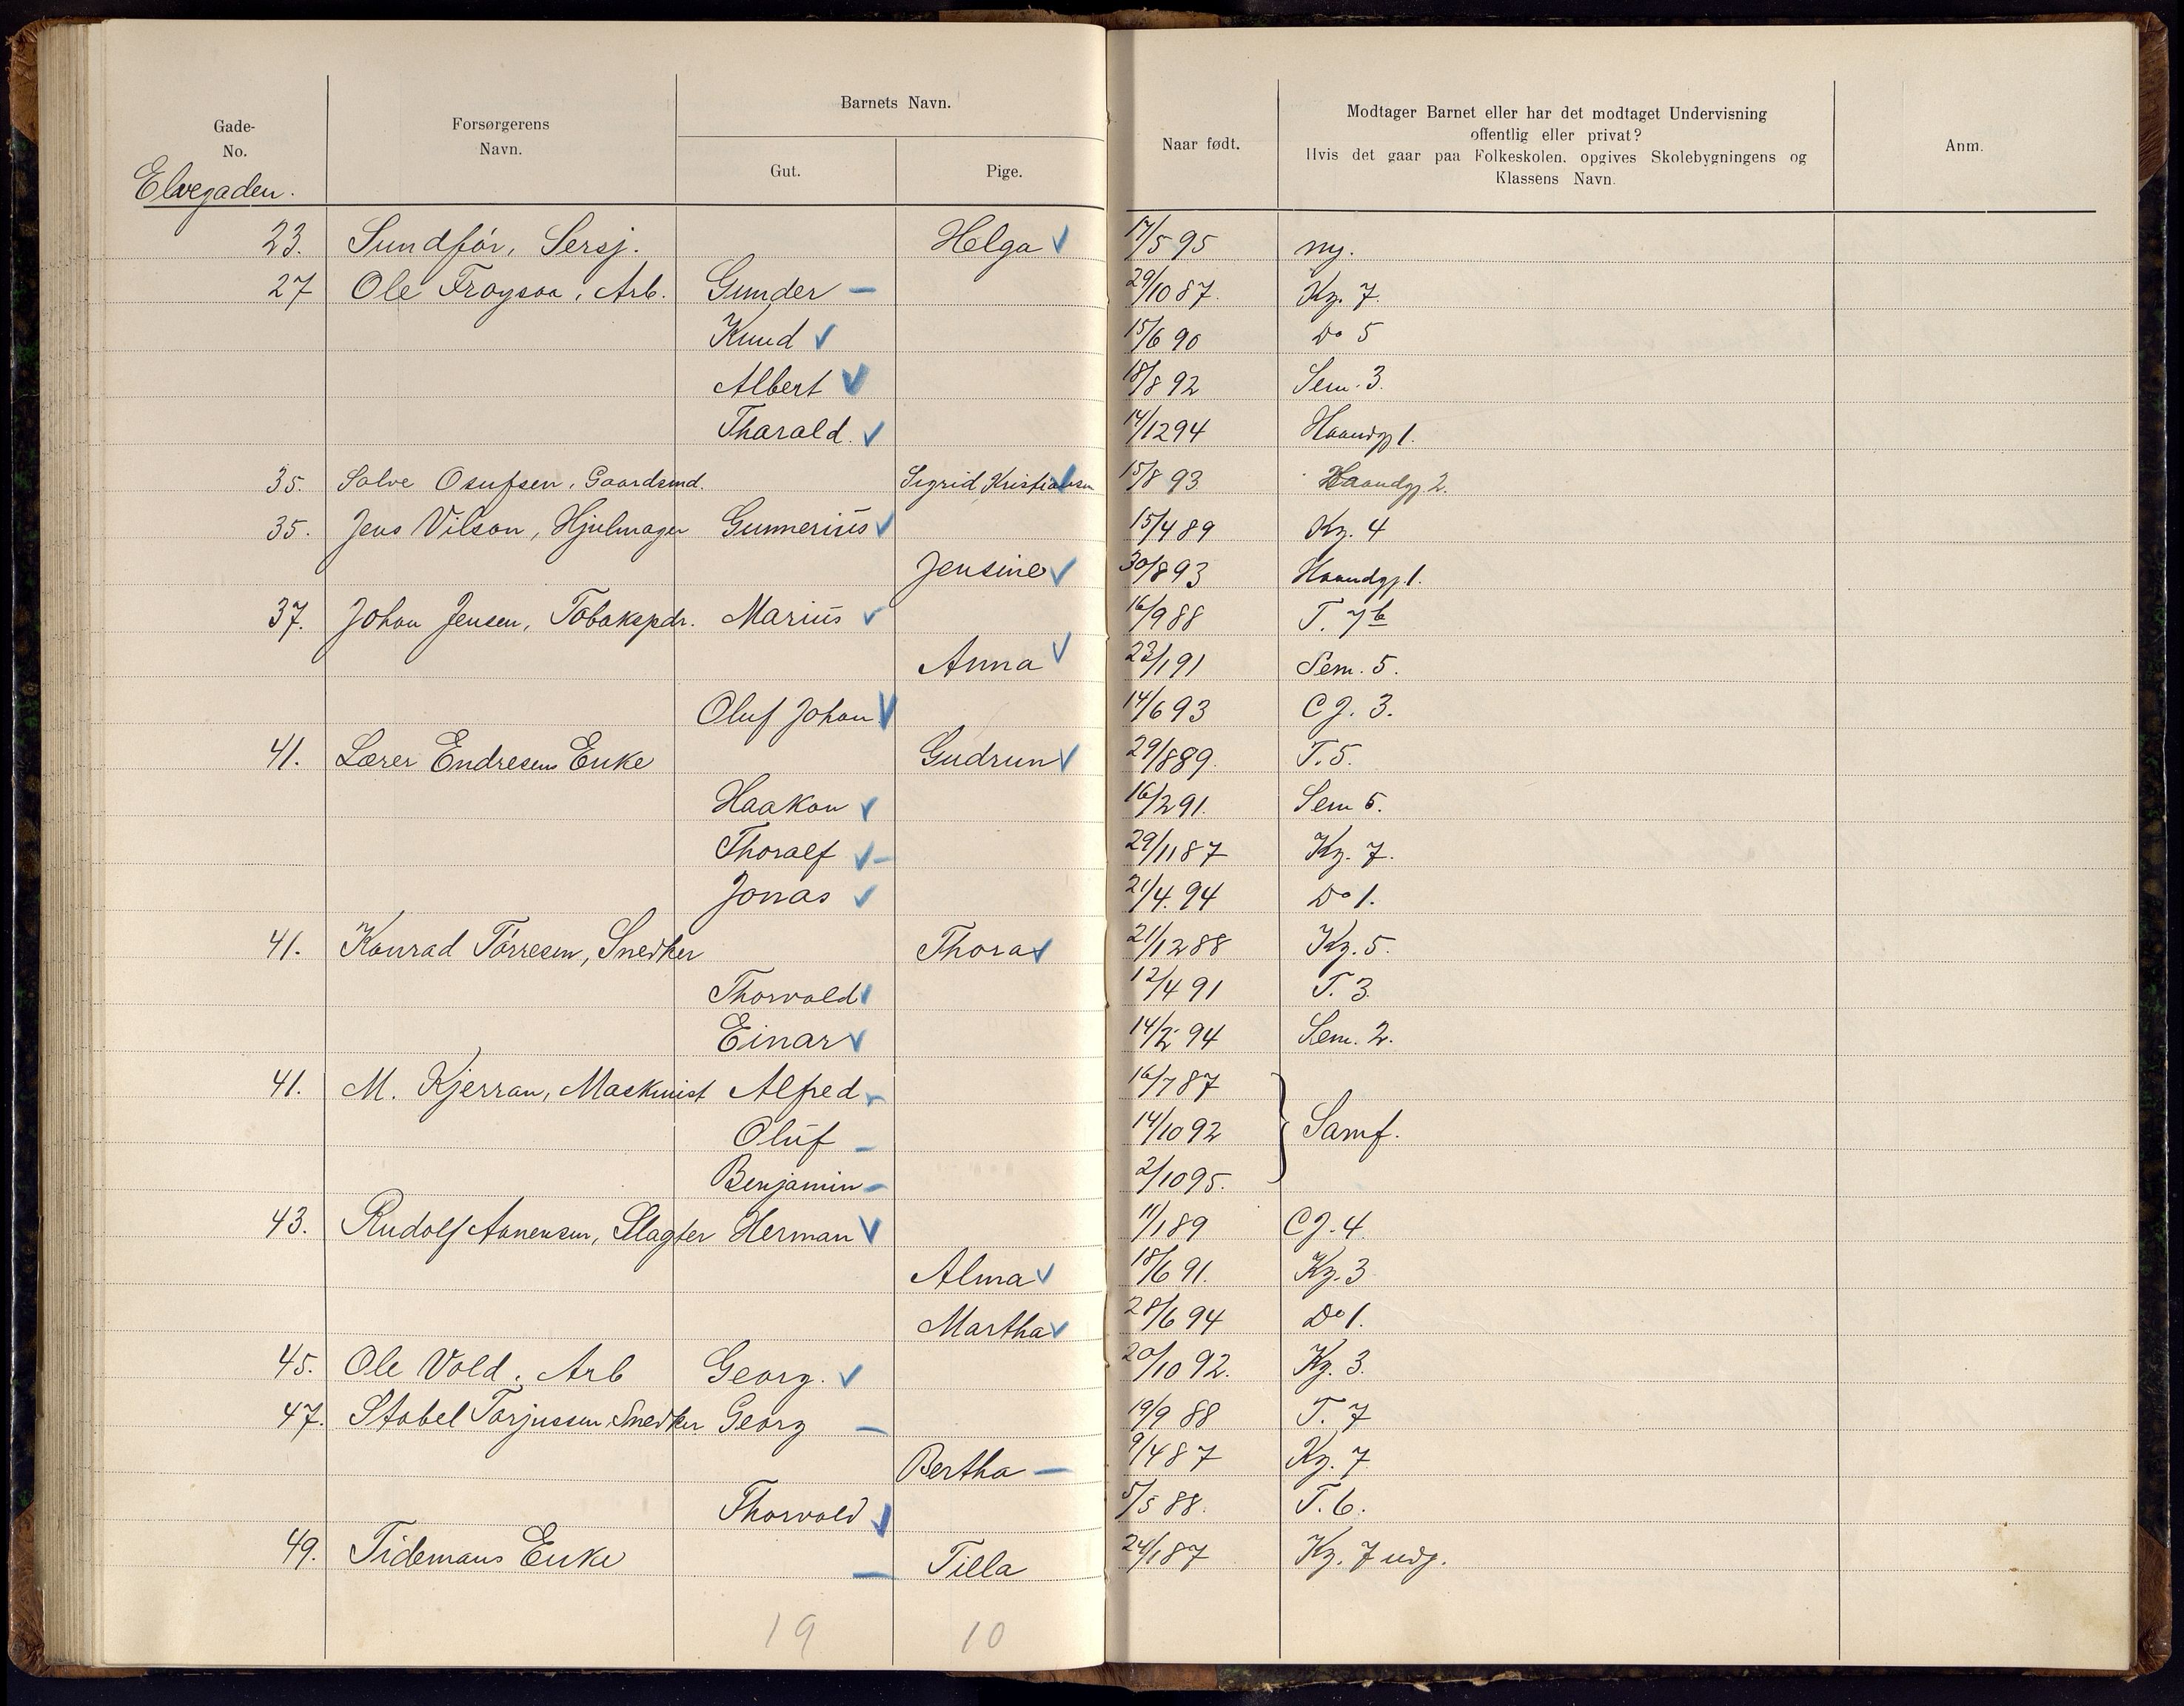 Gade-
No.
Forsørgerens
Navn.
Barnets Navn.
Gut.
Pige.
Naar født.
Modtager Barnet eller har det modtaget Undervisning
offentlig eller privat?
Hvis det gaar paa Folkeskolen, opgives Skolebygningens og
Klassens Navn.
Anm.
Elvegaden.
23. Sundför, Sersj. Helga 17/5 95 ny.
27 Ole Frøysaa, Arb. Gunder 29/10 87. Kg. 7.
Knud 15/6 90 Do 5
Albert 18/8 92 Sem. 3.
Tharald. 14/12 94 Haandgj 1.
35. Salve Osufsen, Gaardsmd. Sigrid Kristiansen 15/8 93 Haandgj 2.
35. Jens Vilson, Hjulmager Gunnerius 15/4 89 Kg. 4
Jensine 30/8 93 Haandgj 1.
37. Johan Jensen, Tobakspdr. Marius 16/9 88 T. 7b
Anna 23/1 91 Sem. 5.
Oluf Johan 14/6 93 CJ. 3.
41. Lærer Endresens Enke Gudrun 29/8 89. T. 5.
Haakon 16/2 91. Sem 5.
Thoralf 29/11 87 Kg. 7.
Jonas 21/4. 94 Do 1.
41. Konrad Törresen, Snedker Thora 21/12 88 Kg. 5.
Thorvald 12/4 91 T. 3
Einar 14/2 94 Sem. 2.
41. M. Kjerran, Maskinist Alfred 16/7 87
Oluf 14/10 92 Samf.
Benjamin 2/10 95.
43. Rudolf Aanensen, Slagter Herman 11/1 89 CJ. 4.
Alma 18/6 91. Kg. 3
Martha 28/6 94 Do 1.
45. Ole Vold, Arb Georg. 20/10 92. Kg. 3.
47. Stabel Torjussen Snedker Georg 19/9 88 T. 7
Bertha 9/4 87 Kg. 7
Thorvald 5/5 88. T. 6.
49. Tidemans Enke Tilla 24/1 87 Kg. 7 udg.
19 10